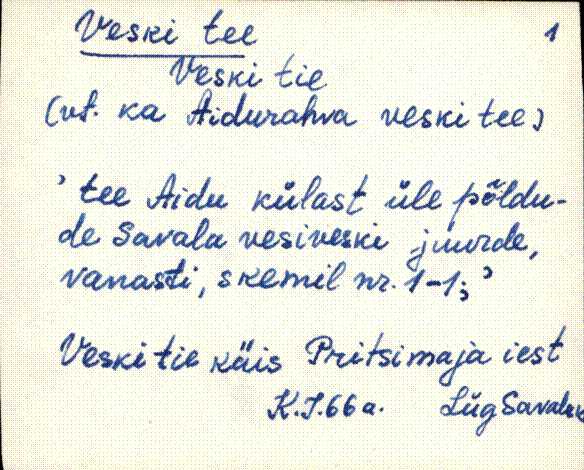 Veski tee 1
Veski tie
(vt. ka Aidurahva veski tee)
’tee Aidu külast üle põldu-
de Savala vesiveski juurde,
vanasti, skemil nr. 1-1;’
Veski tie käis Pritsimaja iest
K.J.66a. Lüg Savala